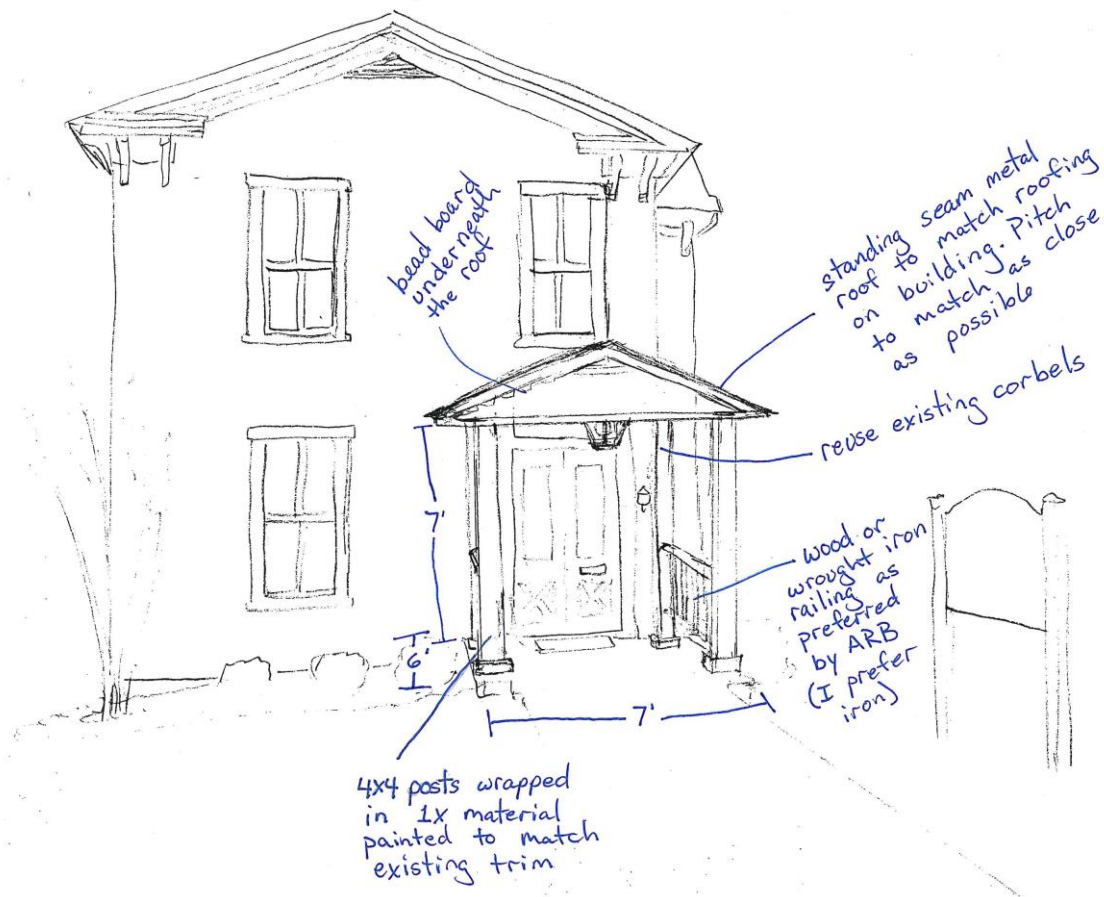 bead board
underneath
the roof
standing seam metal
roof to match roofing
on building. Pitch
to match as close
as possible
reuse existing corbels
7'
wood or
wrought iron
railing as
preferred
by ARB
(I prefer
iron)
6'
7'
4x4 posts wrapped
in 1x material
painted to match
existing trim